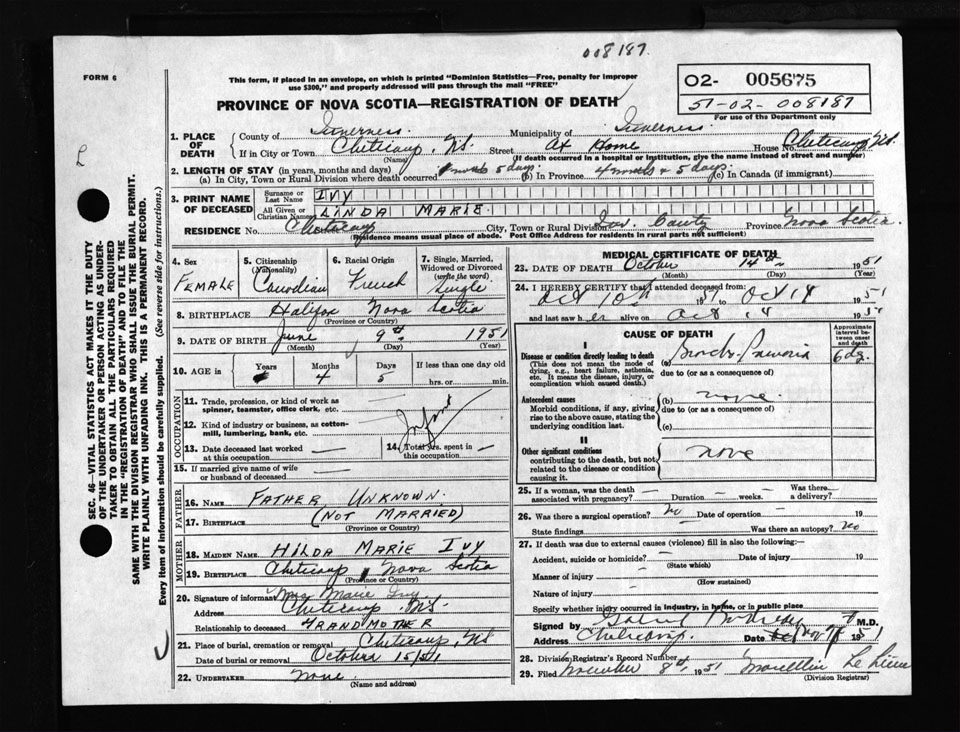 008187.
FORM 6
This form, if placed in an envelope, on which is printed "Dominion Statistics—Free, penalty for improper
use $300," and properly addressed will pass through the mail "FREE"
PROVINCE OF NOVA SCOTIA—REGISTRATION OF DEATH
02- 005675
51-02-008187
For use of the Department only
SEC. 46—VITAL STATISTICS ACT MAKES IT THE DUTY
OF THE UNDERTAKER OR PERSON ACTING AS UNDER-
TAKER TO OBTAIN ALL THE PARTICULARS REQUIRED
IN THE "REGISTRATION OF DEATH" AND TO FILE THE
SAME WITH THE DIVISION REGISTRAR WHO SHALL ISSUE THE BURIAL PERMIT.
WRITE PLAINLY WITH UNFADING INK. THIS IS A PERMANENT RECORD.
Every item of information should be carefully supplied. (See reverse side for instructions.)
1. PLACE OF DEATH
County of Inverness. Municipality of Inverness.
If in City or Town Cheticamp, N.S. Street At Home House No. Cheticamp N.S.
(Name) (If death occurred in a hospital or institution, give the name instead of street and number)
2. LENGTH OF STAY (in years, months and days)
(a) In City, Town or Rural Division where death occurred 4 months 5 days (b) In Province 4 months & 5 days. (c) In Canada (if immigrant)
3. PRINT NAME OF DECEASED
Surname or Last Name IVY
All Given or Christian Names LINDA MARIE.
RESIDENCE No. Cheticamp City, Town or Rural Division Inv. County Province Nova Scotia.
(Residence means usual place of abode. Post Office Address for residents in rural parts not sufficient)
4. Sex FEMALE
5. Citizenship (Nationality) Canadian
6. Racial Origin French
7. Single, Married, Widowed or Divorced (write the word) Single
8. BIRTHPLACE Halifax Nova Scotia
(Province or Country)
9. DATE OF BIRTH June 9th 1951
(Month) (Day) (Year)
10. AGE in Years Months Days If less than one day old
4 5 hrs. or min.
OCCUPATION
11. Trade, profession, or kind of work as
spinner, teamster, office clerk, etc. —
12. Kind of industry or business, as cotton-
mill, lumbering, bank, etc. —
Infant
13. Date deceased last worked
at this occupation —
14. Total yrs. spent in
this occupation —
15. If married give name of wife
or husband of deceased —
FATHER
16. NAME FATHER UNKNOWN.
17. BIRTHPLACE (NOT MARRIED)
(Province or Country)
MOTHER
18. MAIDEN NAME HILDA MARIE IVY
19. BIRTHPLACE Cheticamp Nova Scotia
(Province or Country)
20. Signature of informant Mrs Marie Ivy.
Address Cheticamp N.S.
Relationship to deceased GRANDMOTHER
21. Place of burial, cremation or removal Cheticamp, N.S
Date of burial or removal October 15/51
22. UNDERTAKER None.
(Name and address)
MEDICAL CERTIFICATE OF DEATH
23. DATE OF DEATH October 14th 1951
(Month) (Day) (Year)
24. I HEREBY CERTIFY that I attended deceased from:
Oct 10th 51 to Oct 14 1951
and last saw her alive on Oct 14 19
CAUSE OF DEATH
Approximate interval between onset and death
I
Disease or condition directly leading to death (a) 6 dy.
(This does not mean the mode of due to (or as a consequence)
dying, e.g., heart failure, asthenia,
etc. It means the disease, injury, or
complication which caused death.)
Antecedent causes (b) none.
Morbid conditions, if any, giving due to (or as a consequence)
rise to the above cause, stating the
underlying condition last. (c)
II
Other significant conditions none
contributing to the death, but not
related to the disease or condition
causing it.
25. If a woman, was the death — Was there —
associated with pregnancy? Duration — weeks. a delivery?
26. Was there a surgical operation? No Date of operation — 19
State findings — Was there an autopsy? No
27. If death was due to external causes (violence) fill in also the following:—
Accident, suicide or homicide? — Date of injury 19
(State which)
Manner of injury —
(How sustained)
Nature of injury —
Specify whether injury occurred in industry, in home, or in public place
Signed by M.D.
Address Cheticamp. Date 1951
28. Division Registrar's Record Number
29. Filed November 8th, 1951
(Division Registrar)